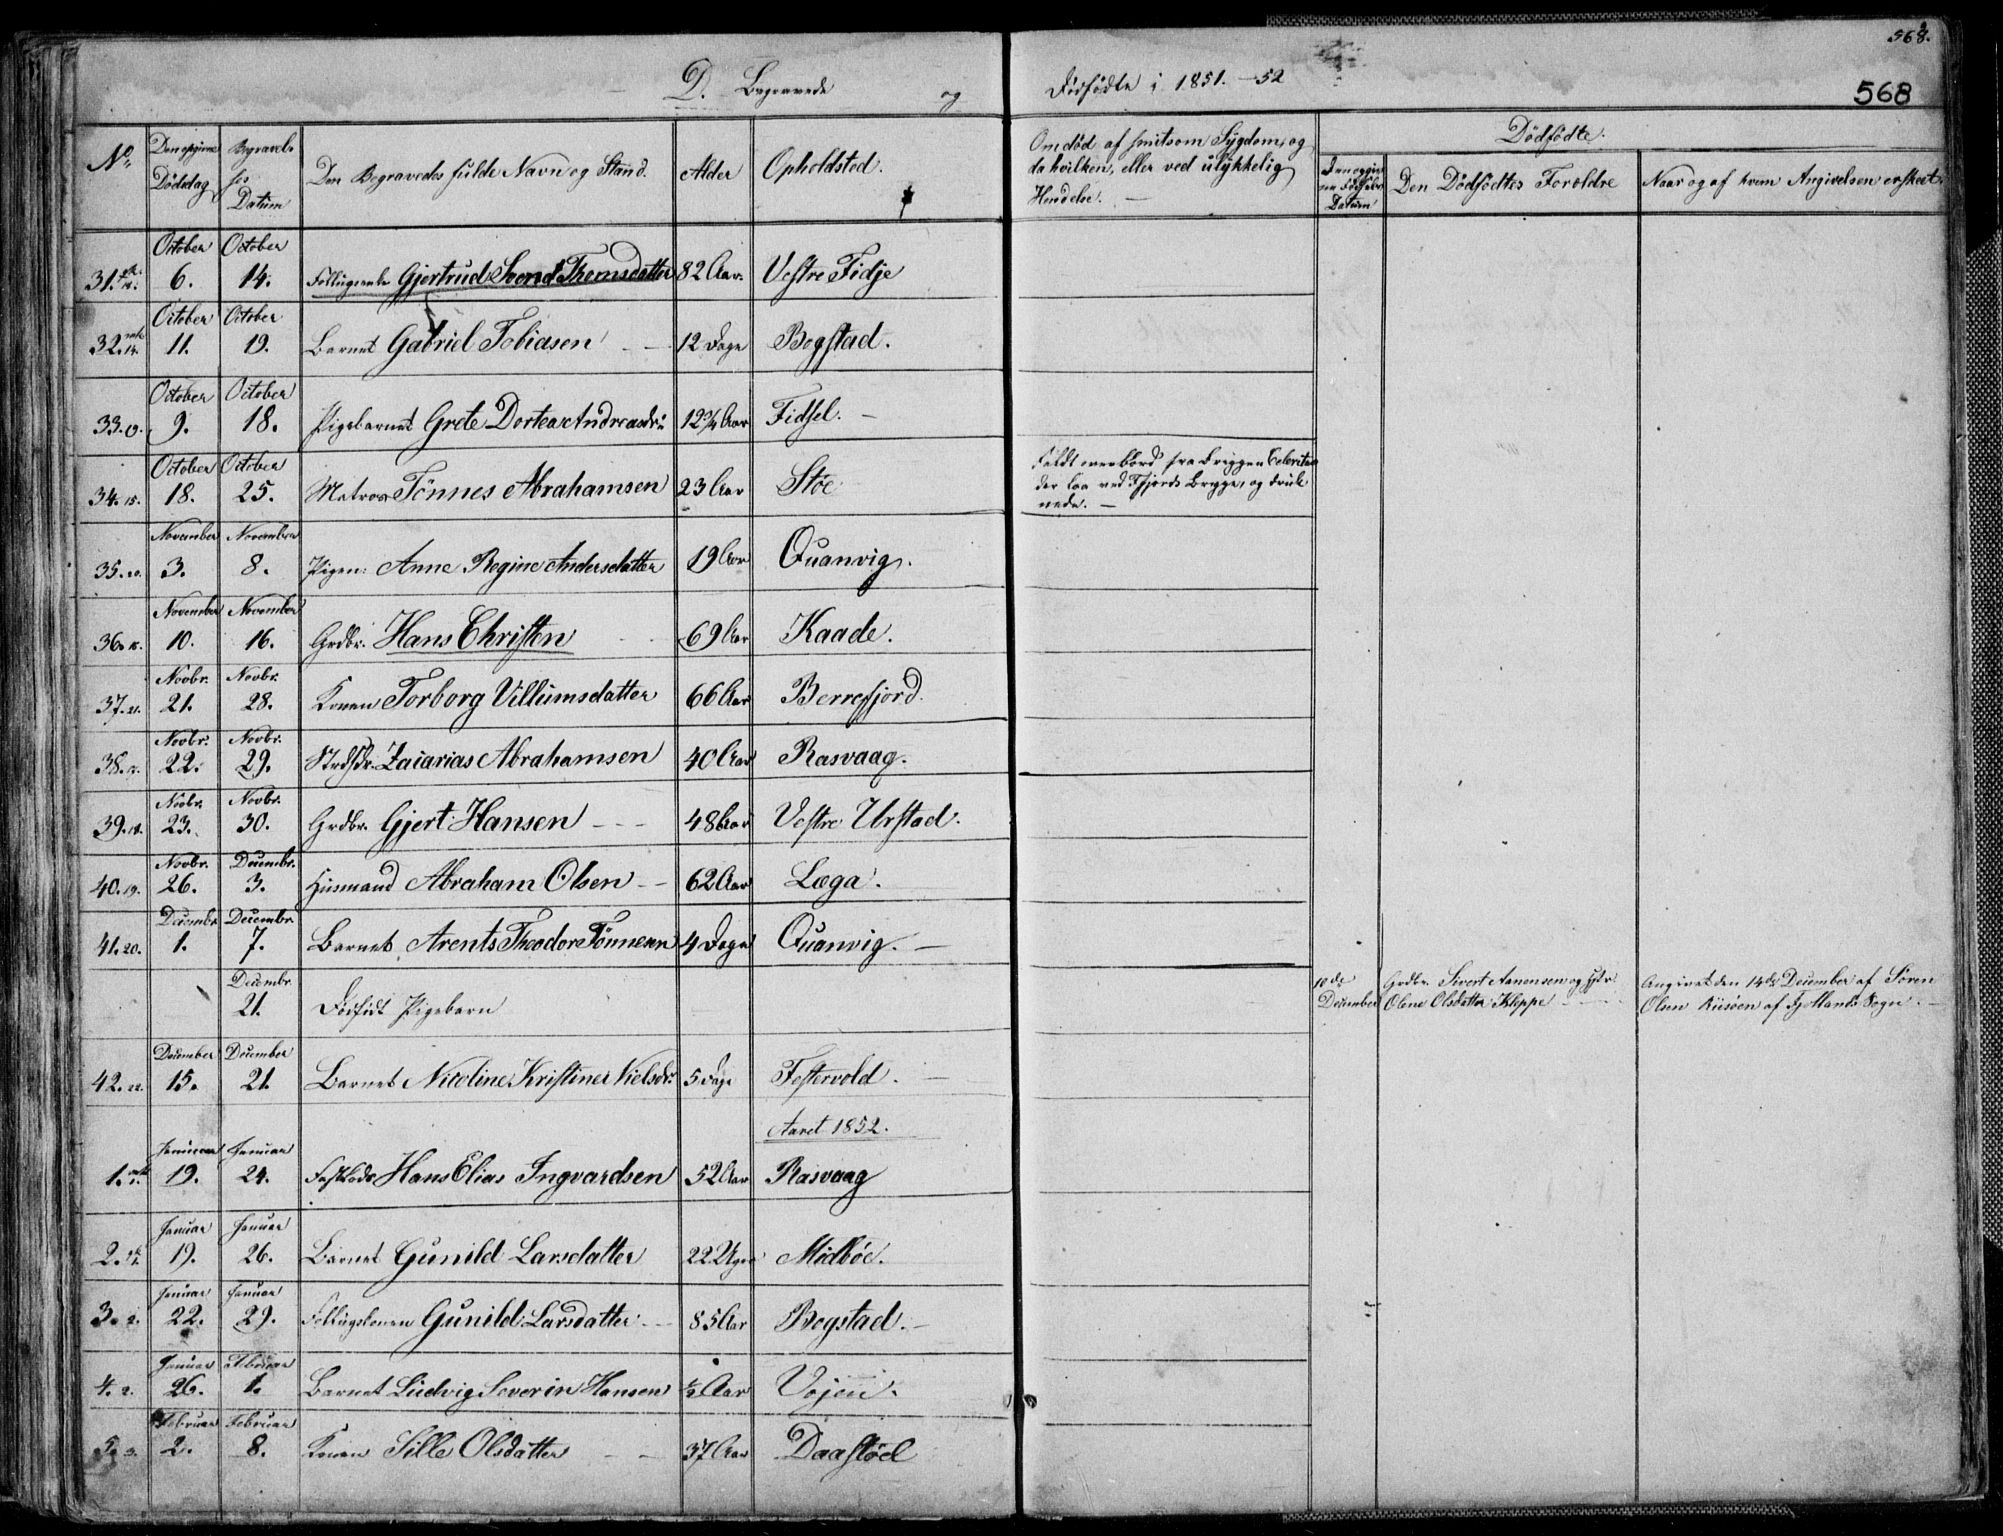 568.
568
D. Begravede og Dödfödte i 1851.–52
No. Den opgivne Dödsdag Begravelses Datum Den Begravedes fulde Navn og Stand. Alder Opholdsted. Om död af smitsom Sygdom, og da hvilken, eller ved ulykkelig Hendelse. –
Dödfödte.
Datum Den Dödfödtes Foroldre Naar og af hvem Angivelsen er skeet.
October October
31. 6. 14. Gjertrud Svend Thomsdatter 82 Aar. Vestre Fidje
October October
32. 11. 19. Barnet Gabriel Tobiasen – – 12 Dage Bogstad.
October October
33. 9. 18. Pigebarnet Grete Dortea Andreasdr: 12¾ Aar Fidsel. –
October October
34. 15. 18. 25. Matros Tönnes Abrahamsen 23 Aar Stöe Faldt overbord fra Briggen Celeritas
der laa ved Fjords Brygge, og druk
nede. –
November November
35. 3. 8. Pigen: Anne Regine Andersdatter 19 Aar Quanvig.
November November
36. 10. 16. Grdbr. Hans Christen 69 Aar Kaade.
Novbr. Novbr.
37. 21. 21. 28. Konen Torborg Villumsdatter 66 Aar Berrefjord.
Novbr. Novbr.
38. 22. 29. Zacarias Abrahamsen 40 Aar Rasvaag.
Novbr. Novbr.
39. 18. 23. 30. Grdbr. Gjert Hansen – – – 48 Aar Vestre Urstad.
Novbr. Decembr.
40. 19. 26. 3. Husmand Abraham Olsen – – 62 Aar Læga.
Decembr. Decembr.
41. 20. 1. 7. Barnet Arents Theodor Tönnesen 4 Dage Quanvig. –
Decembr. 10de Grdbr. Sivert Aanensen og Hstr. Angivet den 14de December af Sören
21. Dödfödt Pigebarn December Olene Olsdatter Kleppe Olsen Riisöen af Fjotlands Sogn. –
December December
42. 22. 15. 21. Barnet Nicoline Kristine Nielsdr. 5 Dage Festervold. –
Aaret 1852.
Januar Januar
1. 19. 24. Hans Elias Ingvardsen 52 Aar Rasvaag
Januar Januar
2. 19. 26. Barnet Gunild Larsdatter 22 Uger Midböe.
Januar Januar
3. 2. 22. 29. Gunild Larsdatter – – 85 Aar Bogstad. –
Januar Februar
4. 2. 26. 1. Barnet Ludvig Severin Hansen ½ Aar
Februar Februar
5. 3. 2. 8. Konen Sille Olsdatter – – 37 Aar Daastöel